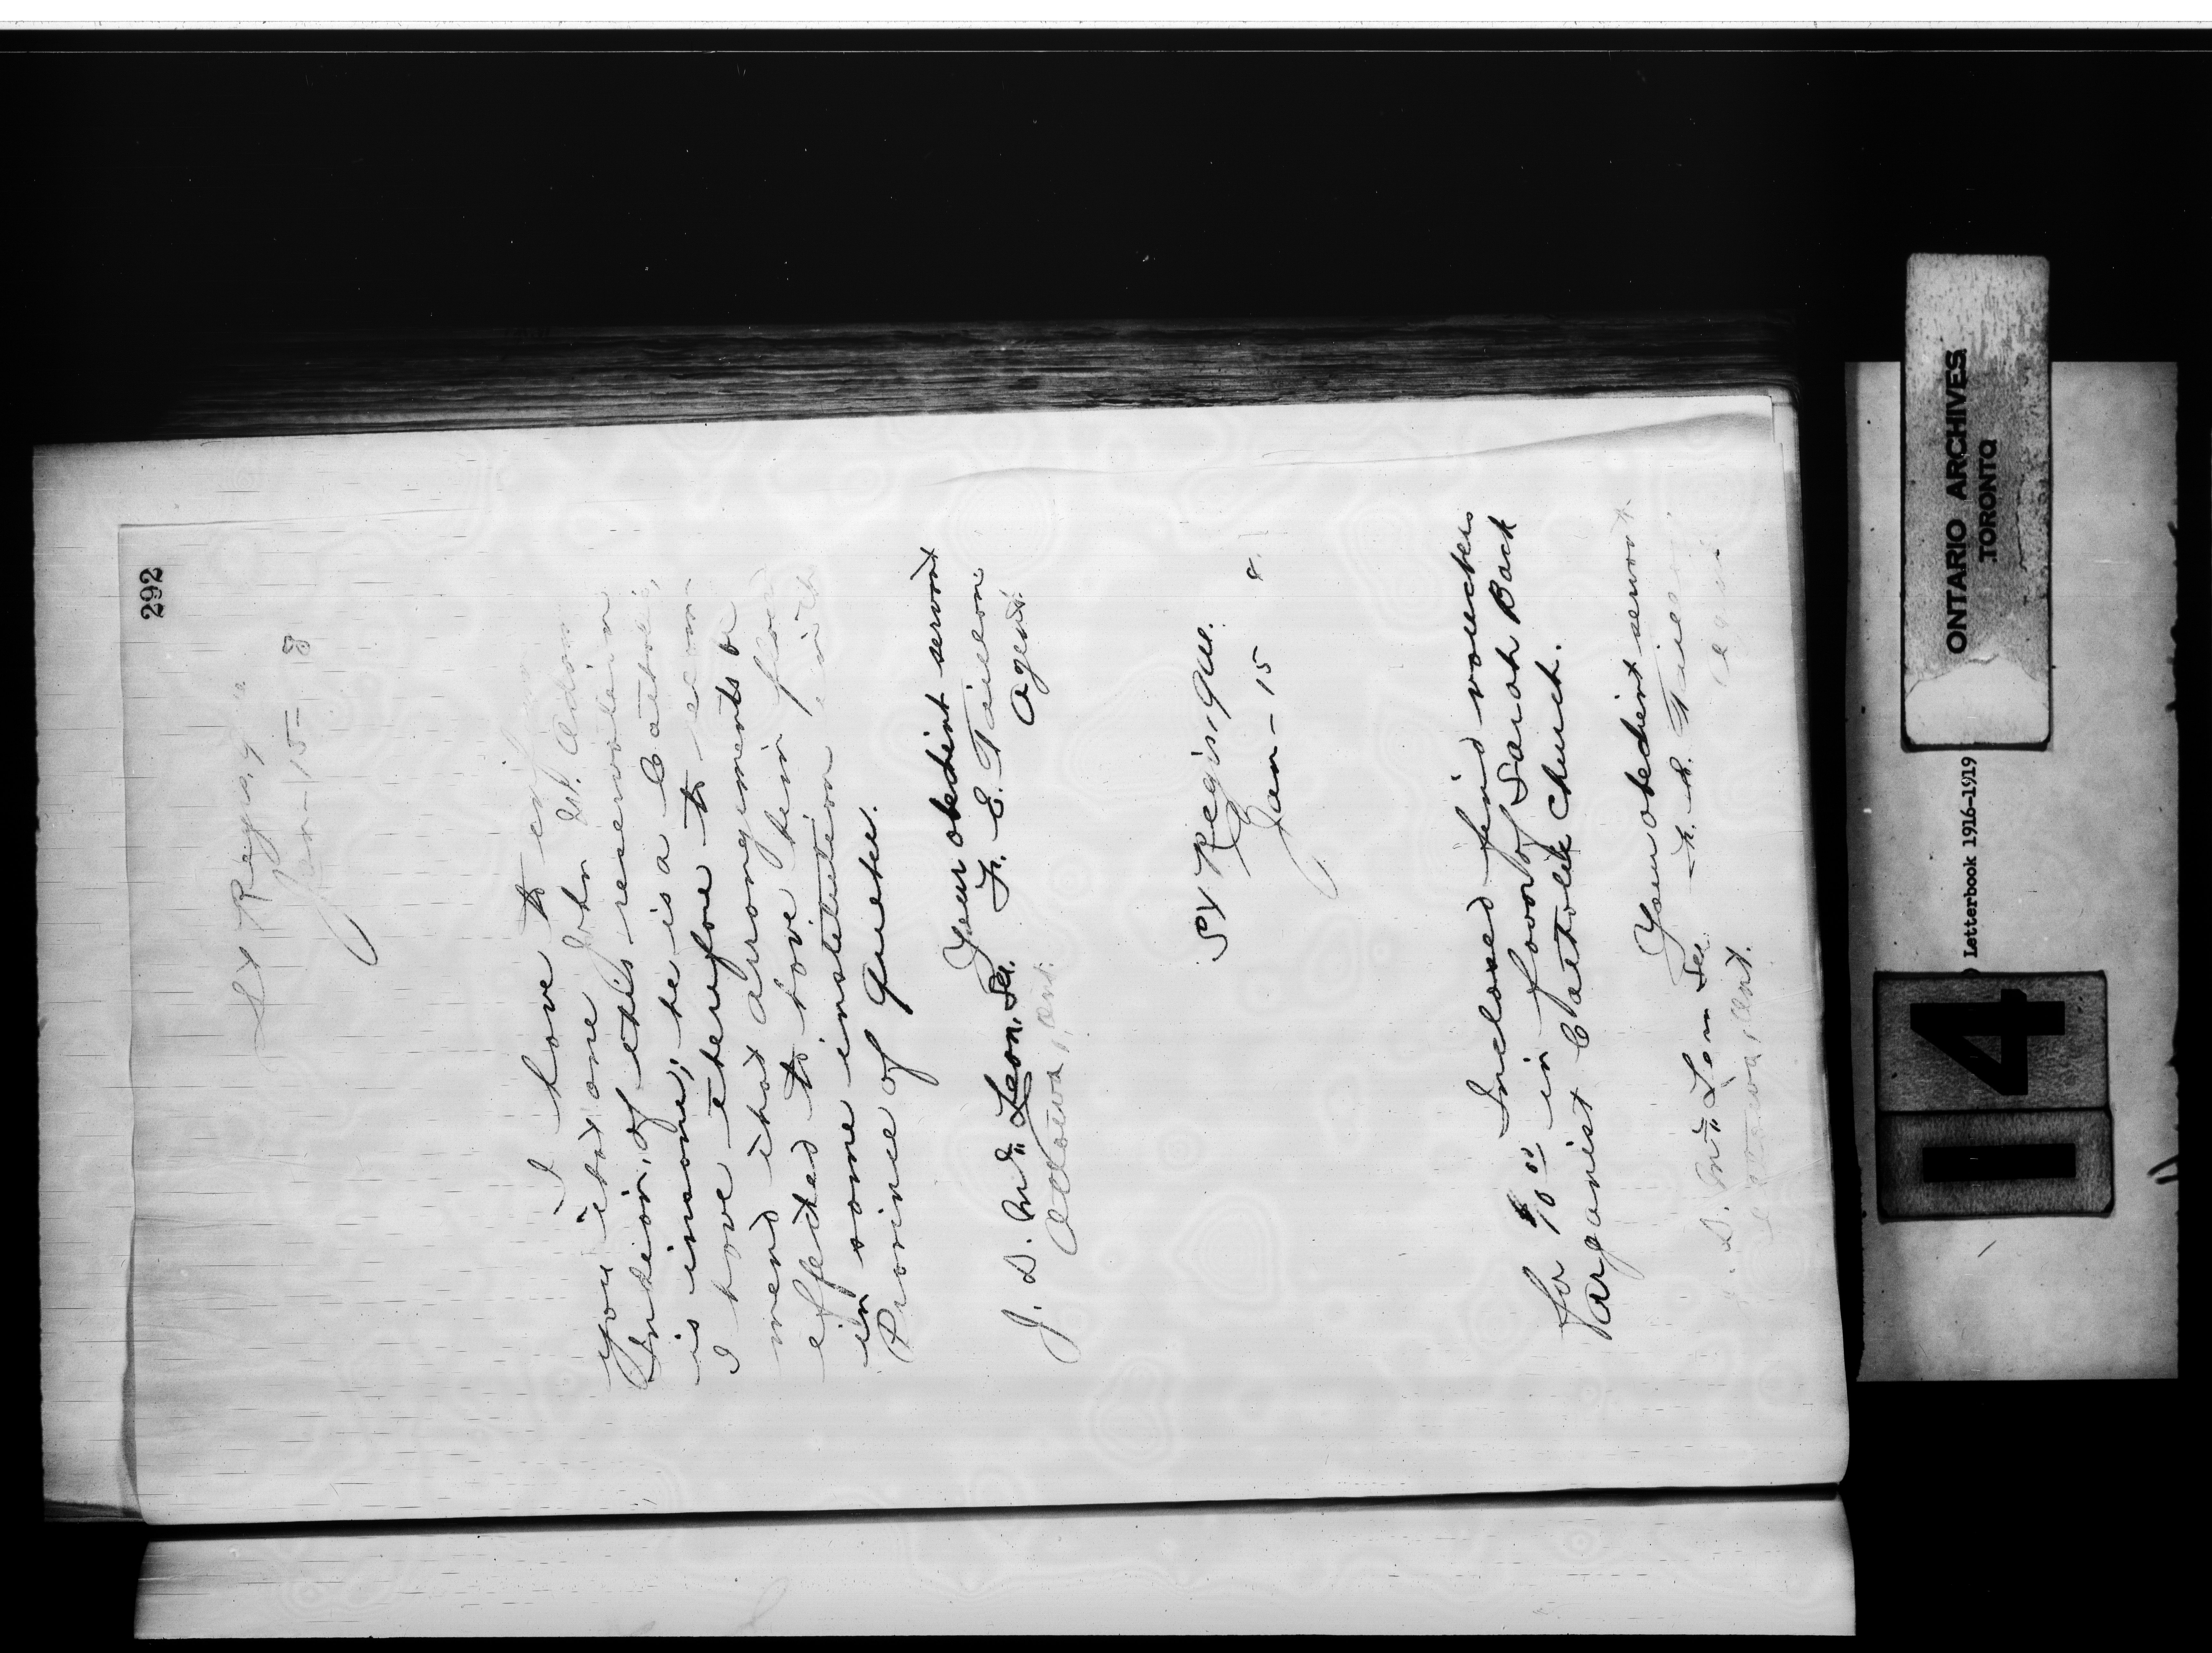 292
St Regis, Q
Jan - 15 - 8
I have to
you that one John St. Adam
Indian, of this reservation
is insane; he is a Catholic,
I have therefore to recom
mend that arrangements be
effected to have him placed
in some institution in the
Province of Quebec.
Your obedient servant
J. D. McLean, Sec. F. E. Taillon
Ottawa, Ont. Agent.
St Regis, Que.
Jan - 15 8.
Inclosed find vouchers
for $10.00 in favor of Sarah Back
organist Catholic Church.
Your obedient servant
J. D. McLean Sec. F. E. Taillon
Ottawa, Ont. Agent.
ONTARIO ARCHIVES
TORONTO
Letterbook 1916-1919
14